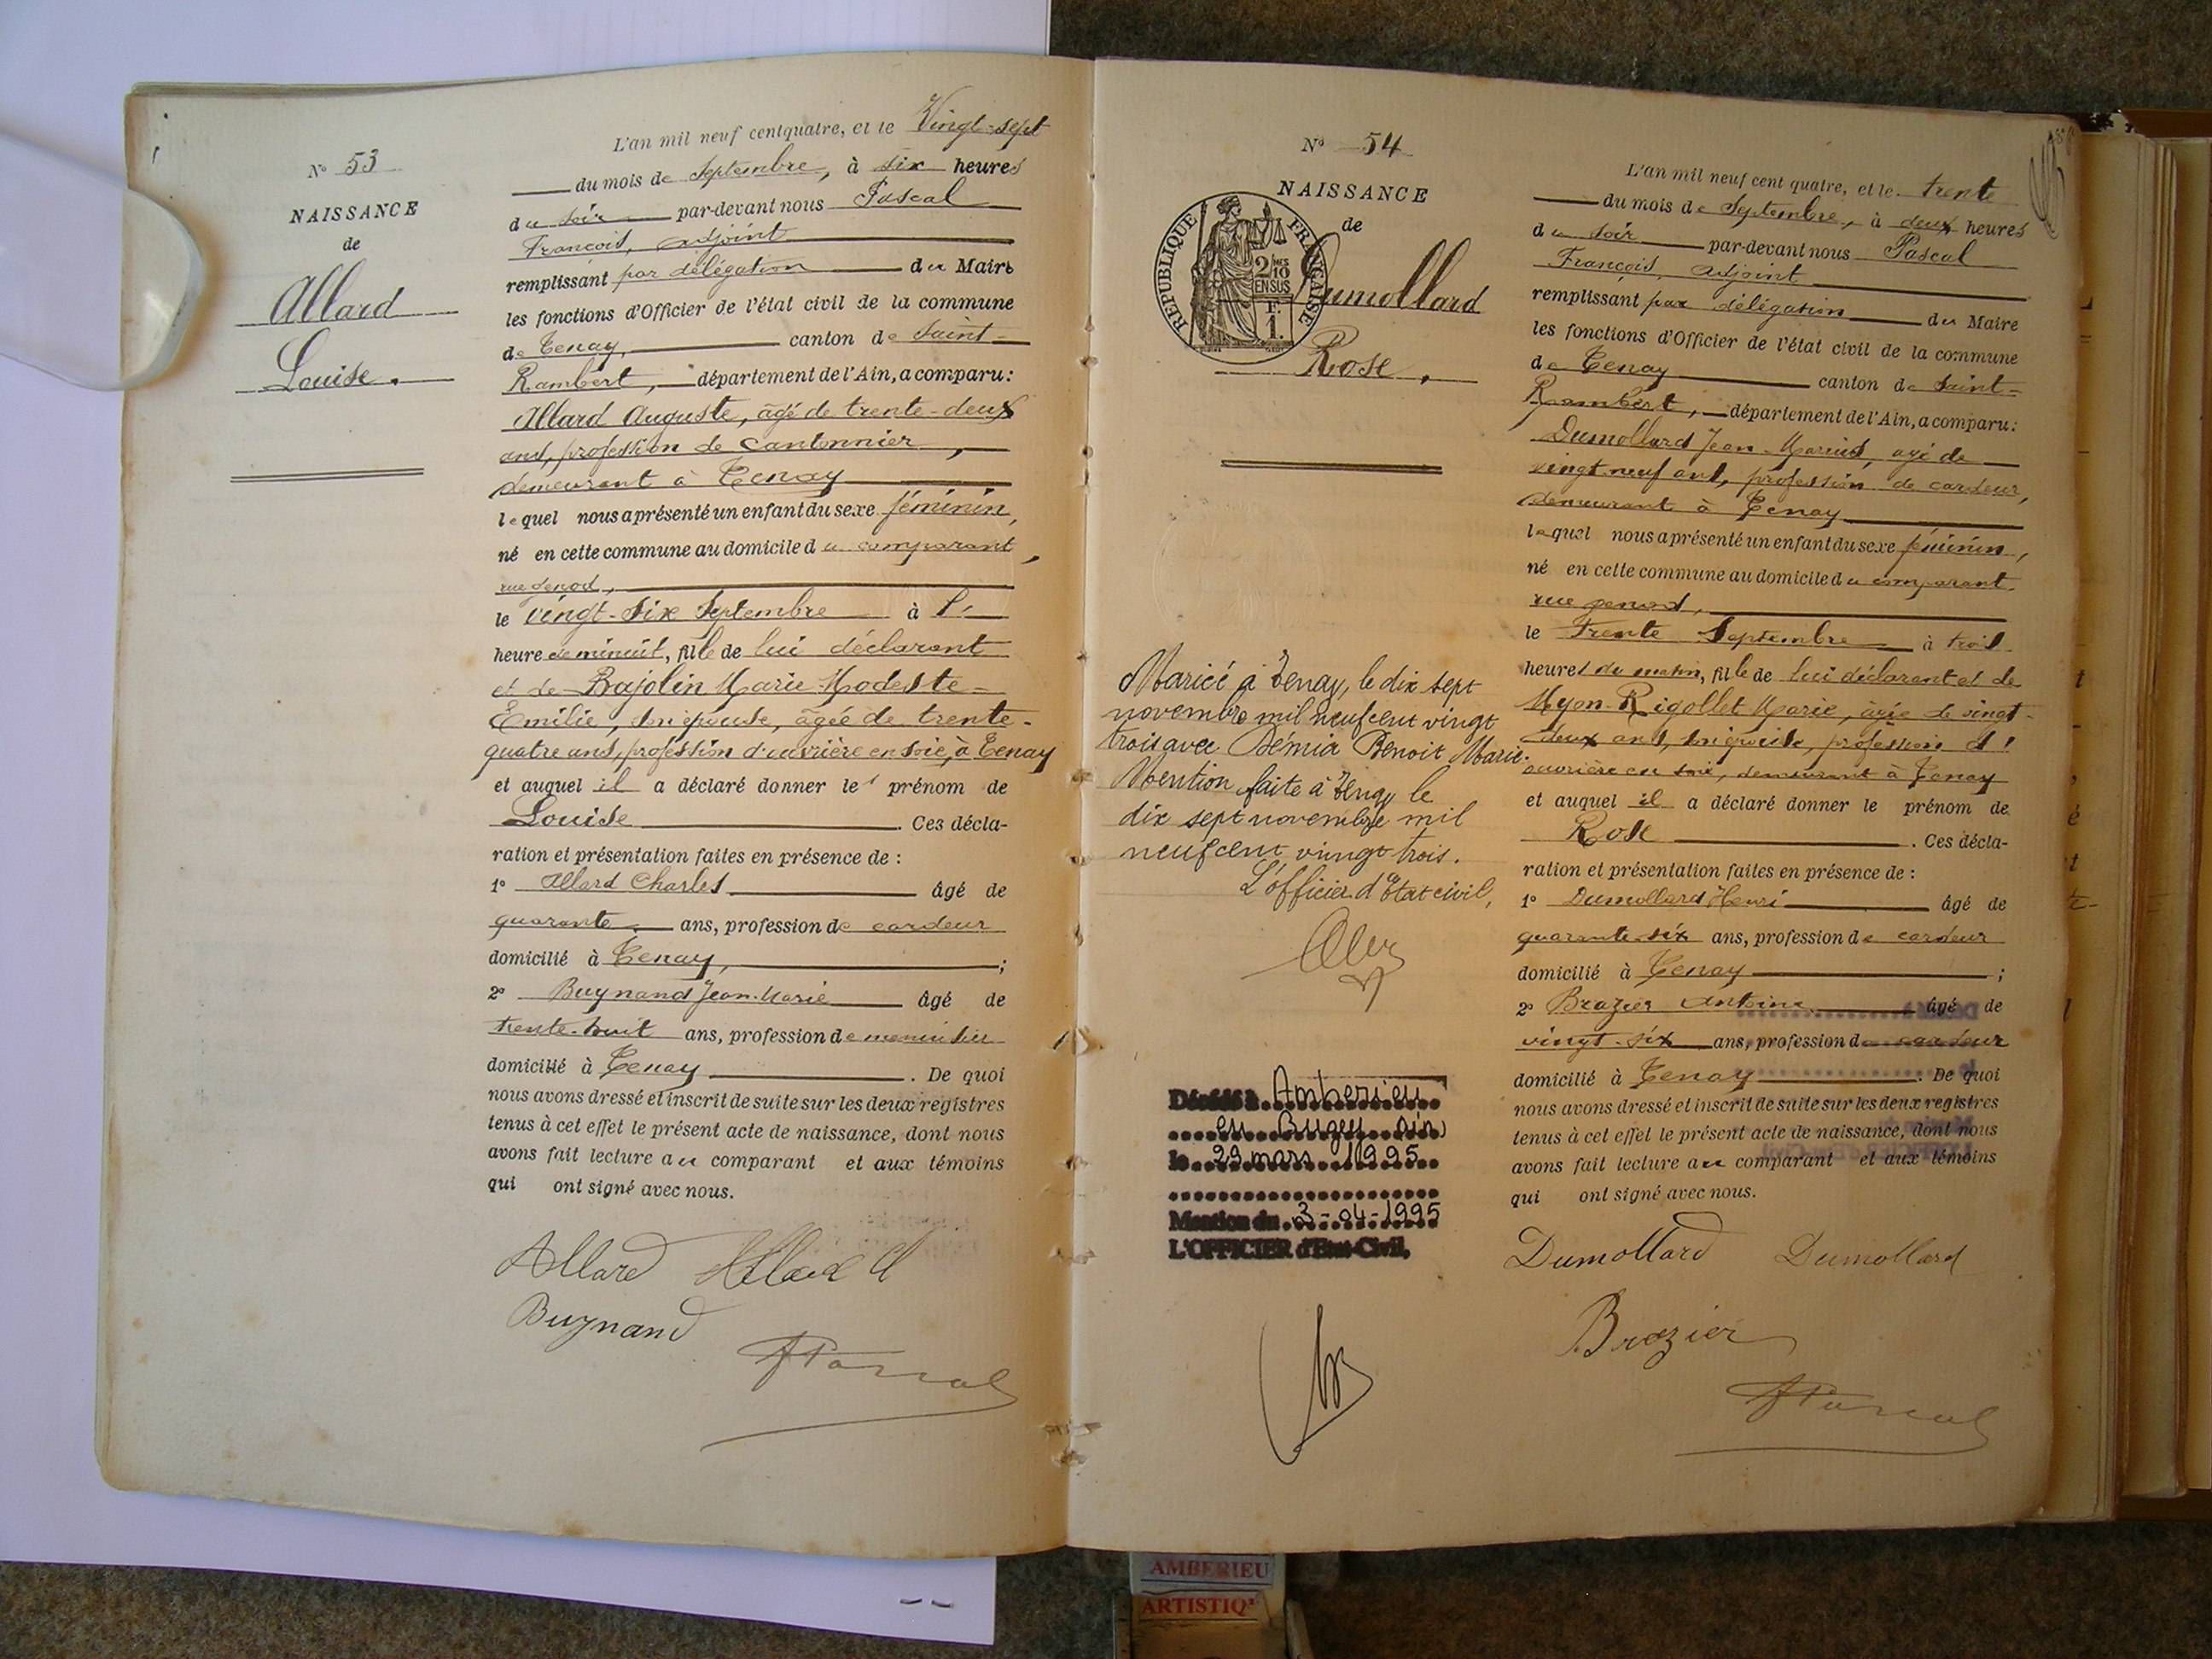 N° 53
NAISSANCE
de
Allard
Louise.
L'an mil neuf cent quatre, et le Vingt-sept
du mois de Septembre, à six heures
du soir par-devant nous Pascal
François, adjoint
remplissant par délégation du Maire
les fonctions d'Officier de l'état civil de la commune
de Tenay, canton de Saint-
Rambert, département de l'Ain, a comparu:
Allard Auguste, âgé de trente-deux
ans, profession de cantonnier,
demeurant à Tenay
lequel nous a présenté un enfant du sexe féminin,
né en cette commune au domicile du comparant,
rue genod,
le vingt-six Septembre à l'
heure de minuit, fille de lui déclarant
et de Bajolin Marie Modeste-
Emilie, son épouse, âgée de trente-
quatre ans, profession d'ouvrière en soie, à Tenay
et auquel il a déclaré donner le prénom de
Louise. Ces décla-
ration et présentation faites en présence de :
1° Allard Charles âgé de
quarante ans, profession de cardeur
domicilié à Tenay, ;
2° Buynand Jean-Marie âgé de
trente-huit ans, profession de menuisier
domicilié à Tenay. De quoi
nous avons dressé et inscrit de suite sur les deux registres
tenus à cet effet le présent acte de naissance, dont nous
avons fait lecture au comparant et aux témoins
qui ont signé avec nous.
Allard Allard
Buynand
Pascal
N° 54
NAISSANCE
de
REPUBLIQUE FRANÇAISE
2/10 MES
EN SUS
1 F.
Dumollard
Rose.
Marieé à Tenay, le dix sept
novembre mil neufcent vingt
trois avec Démia Benoit Marie.
Mention faite à Tenay le
dix sept novembre mil
neufcent vingt trois.
L'officier d'Etat civil,
Décédé à Amberieu
en Bugey (Ain)
le 29 mars 1995
Mention du 3-04-1995
L'OFFICIER d'Etat-Civil,
L'an mil neuf cent quatre, et le trente
du mois de Septembre, à deux heures
du soir par-devant nous Pascal
François, adjoint
remplissant par délégation du Maire
les fonctions d'Officier de l'état civil de la commune
de Tenay canton de Saint-
Rambert, département de l'Ain, a comparu:
Dumollard Jean-Marius, âgé de
vingt-neuf ans, profession de cardeur,
demeurant à Tenay
lequel nous a présenté un enfant du sexe féminin,
né en cette commune au domicile du comparant
rue genod,
le Trente Septembre à trois
heures du matin, fille de lui déclarant et de
Myon-Rigollet Marie, âgée de vingt-
deux ans, son épouse, profession d'
ouvrière en soie, demeurant à Tenay
et auquel il a déclaré donner le prénom de
Rose. Ces décla-
ration et présentation faites en présence de :
1° Dumollard Henri âgé de
quarante-six ans, profession de cardeur
domicilié à Tenay ;
2° Brazier Antoine âgé de
vingt-six ans, profession de cardeur
domicilié à Tenay. De quoi
nous avons dressé et inscrit de suite sur les deux registres
tenus à cet effet le présent acte de naissance, dont nous
avons fait lecture au comparant et aux témoins
qui ont signé avec nous.
Dumollard Dumollard
Brazier
Pascal
AMBERIEU
ARTISTIQ